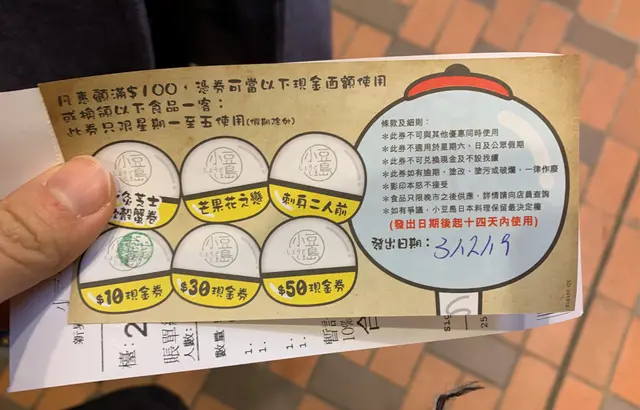 凡惠顧滿$100，憑券可當以下現金面額使用
或換領以下食品一客：
此券只限星期一至五使用(假期除外)
小豆島
小豆島
小豆島
芝士
蟹卷
芒果花之戀
刺身二人前
小豆島
小豆島
小豆島
$10現金券
$30現金券
$50現金券
條款及細則：
*此券不可與其他優惠同時使用
*此券不適用於星期六、日及公眾假期
*此券不可兌換現金及不設找續
*此券如有逾期、塗改、塗污或破爛，一律作廢
*影印本恕不接受
*食品只限晚市之後供應，詳情請向店員查詢
*如有爭議，小豆島日本料理保留最決定權
(發出日期後起十四天內使用)
發出日期：3/12/19
檯：2
賬單
人數：
數量
1.
1.
1.
10%